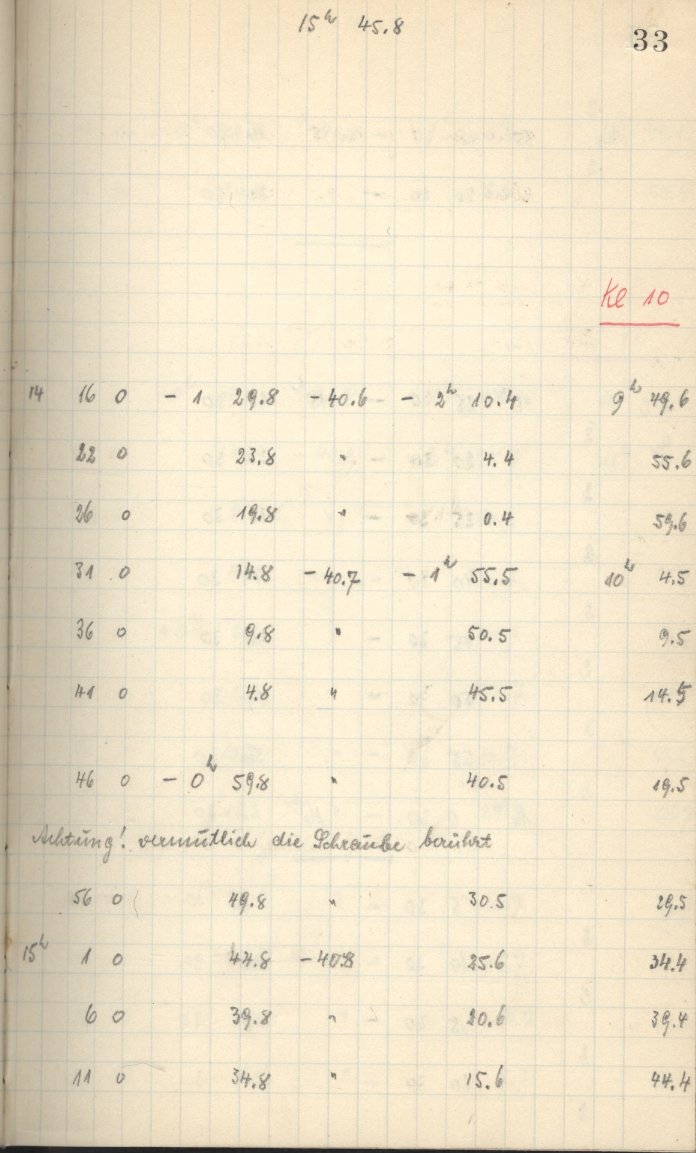 15h 45.8
33
Kl 10
14 16 0 - 1 29.8 - 40.6 - 2h 10.4 9h 49.6
22 0 23.8 " 4.4 55.6
26 0 19.8 " 0.4 59.6
31 0 14.8 - 40.7 - 1h 55.5 10h 4.5
36 0 9.8 " 50.5 9.5
41 0 4.8 " 45.5 14.5
46 0 - 0h 59.8 " 40.5 19.5
Achtung! vermutlich die Schraube berührt
56 0 49.8 " 30.5 29.5
15h 1 0 44.8 - 40.8 25.6 34.4
6 0 39.8 " 20.6 39.4
11 0 34.8 " 15.6 44.4